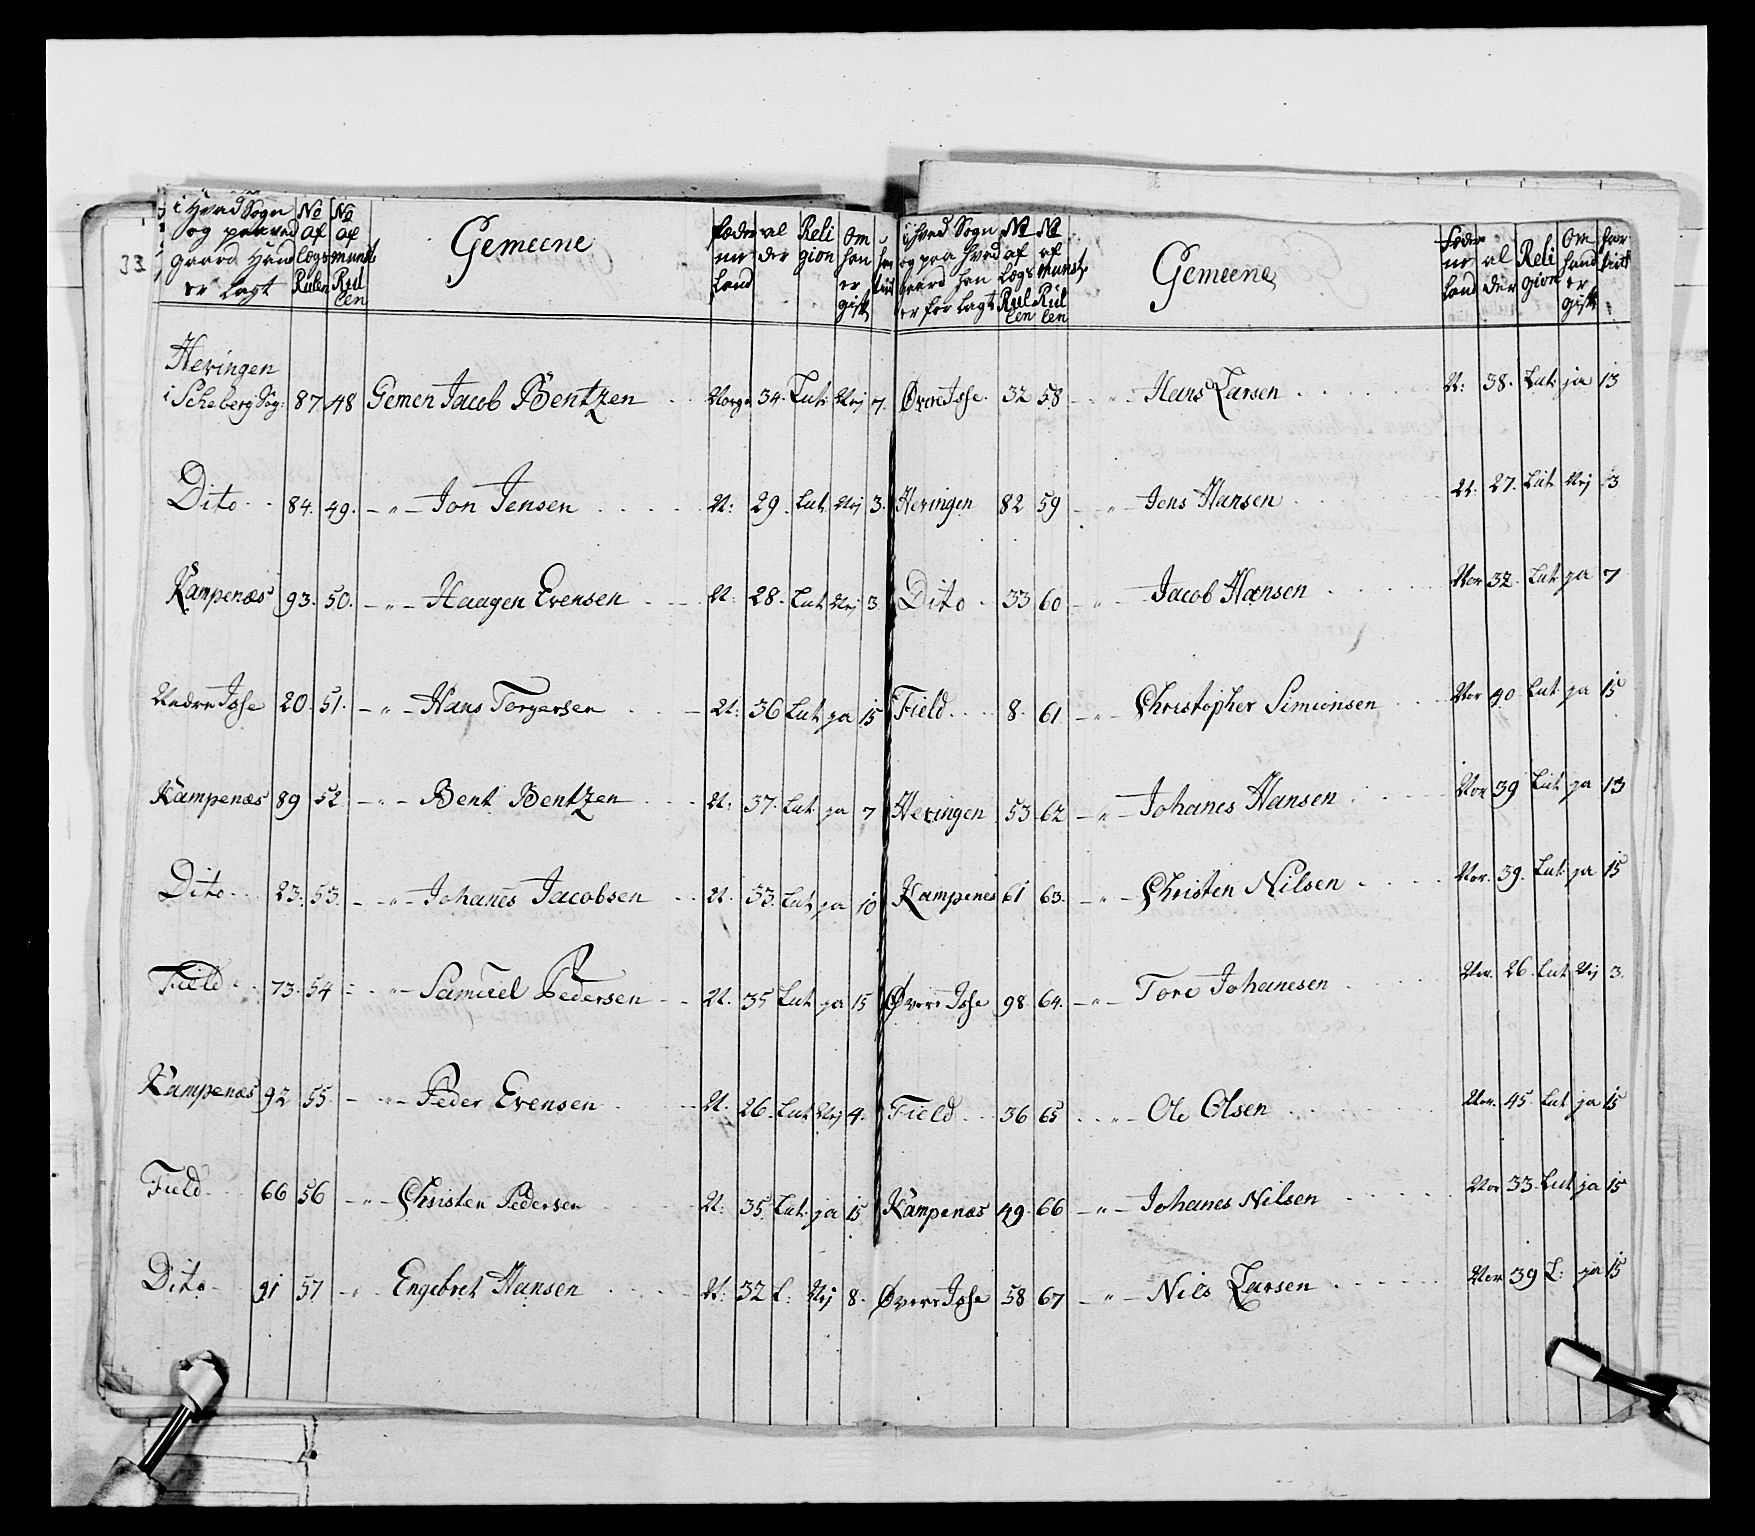 33
i Hvad Sogn og paa hvad gaard Hand er lagt | No af Lægs Rulen | No af munst: Rullen | Gemeene | Føde land | alder | Religion | om han er gift
Heringen
i Scheberg Sog: 87. 48 Gemen Jacob Bentzen Norge 34. Lut: Nej 7.
Dito 84. 49. — " — Jon Jensen N: 29. Lut Nej 3.
Kampenæs 93. 50. — " — Haagen Evensen N: 28. Lut Nej 3
Nedre Isse 20. 51. — " — Hans Torgersen N: 36 Lut ja 15
Kampenæs 89 52. — " — Bent Bentzen N: 37. Lut ja 7
Dito 23. 53. — " — Johanes Jacobsen N. 33. Lut ja 10
Field 73. 54 — " — Samuel Pedersen N. 35 Lut ja 15
Kampenæs 92 55. — " — Peder Evensen N. 26. Lut Nej 4.
Field 66 56 — " — Christen Pedersen N: 35. Lut. ja 15
Dito 91 57 — " — Engebret Hansen N: 32 L: Nej 8.
i hvad Sogn og paa hvad gaard han er for lagt | No af Lægs Rullen | No af munst: Rullen | Gemeene | Føde land | alder | Religion | Om hand er gift
Øvre Isse. 32 58 — " — Hans Larsen N: 38. Lut: ja 13
Heringen 82 59 — " — Jens Hansen N. 27. Lut Nej 3
Dito 33 60 — " — Jacob Hansen Nor 32. Lut ja 7
Field 8. 61 — " — Christopher Simionsen Nor 40 Lut ja 15
Heringen 53 62 — " — Johanes Hansen Nor 39 Lut ja 13
Kampenes 61 63. — " — Christen Nilsen Nor. 39. Lut ja 15
Øvere Isse 98. 64. — " — Tore Johanesen Nor. 26. Lut Nej 3.
Field 36 65 — " — Ole Olsen Nor. 45. Lut ja 15
Kampenæs 49. 66 — " — Johanes Nilsen Nor 33. Lut ja 15
Øvere Isse 58 67 — " — Nils Larsen Nor 39 L: ja 15